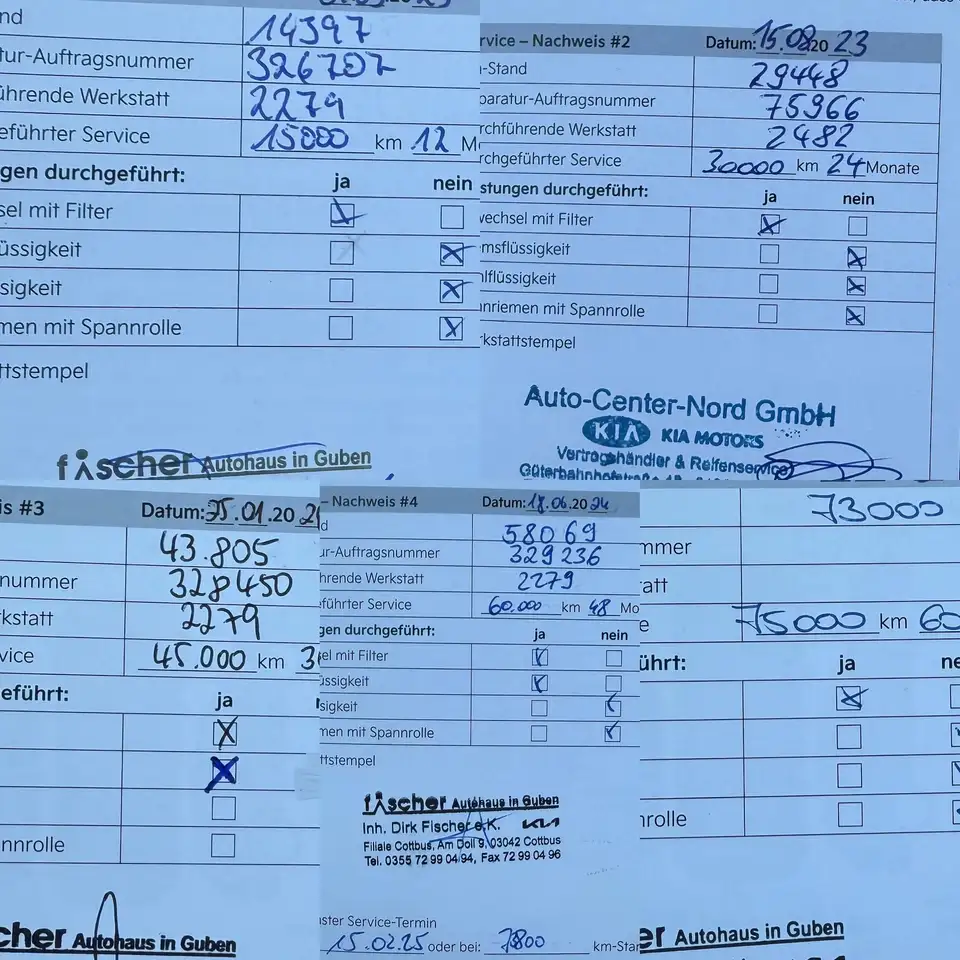 14397
tur-Auftragsnummer 326707
ührende Werkstatt 2279
eführter Service 15000 km 12 M
gen durchgeführt: ja nein
sel mit Filter
üssigkeit
sigkeit
men mit Spannrolle
ttstempel
fischer Autohaus in Guben
rvice – Nachweis #2 Datum: 15.08.2023
-Stand 29448
paratur-Auftragsnummer 75966
rchführende Werkstatt 2482
rchgeführter Service 30000 km 24 Monate
stungen durchgeführt: ja nein
wechsel mit Filter
msflüssigkeit
lflüssigkeit
nriemen mit Spannrolle
rkstattstempel
Auto-Center-Nord GmbH
KIA KIA MOTORS
Vertragshändler & Reifenservice
is #3 Datum: 25.01.20
43.805
nummer 328450
kstatt 2279
vice 45.000 km 3
eführt: ja
nnrolle
cher Autohaus in Guben
– Nachweis #4 Datum: 17.06.2024
d 58069
ur-Auftragsnummer 329236
hrende Werkstatt 2279
eführter Service 60.000 km 48 Mo
gen durchgeführt: ja nein
el mit Filter
üssigkeit
sigkeit
men mit Spannrolle
ttstempel
fischer Autohaus in Guben
Inh. Dirk Fischer e.K. KIA
Filiale Cottbus, Am Doll 9, 03042 Cottbus
Tel. 0355 72 99 04 94, Fax 72 99 04 96
ster Service-Termin
15.02.25 oder bei: km-Sta
73000
mmer
att
e 75000 km 60
ührt: ja ne
nrolle
er Autohaus in Guben